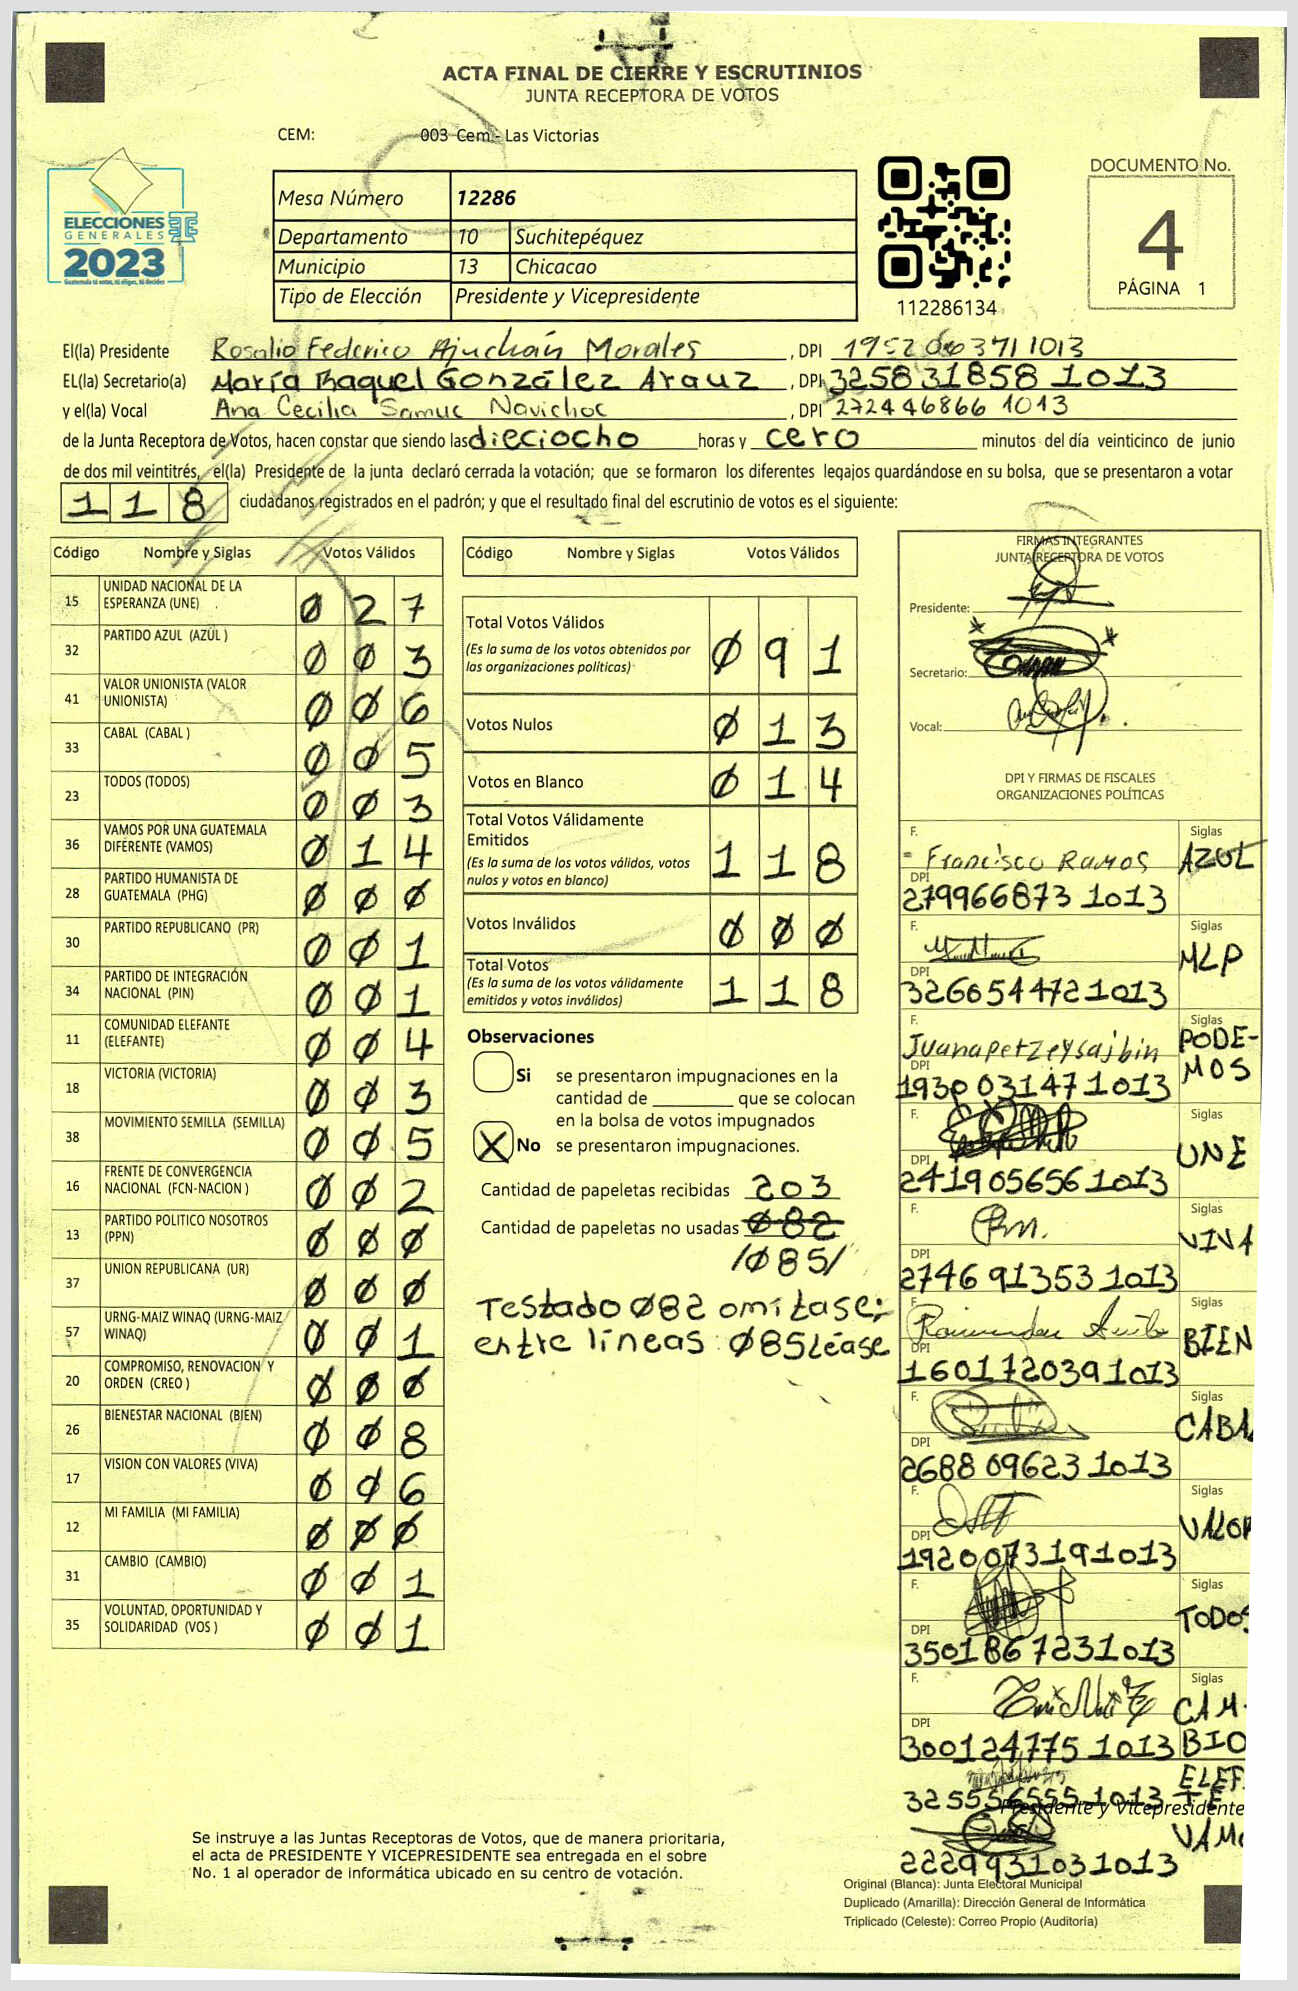 ACTA FINAL DE CIERRE Y ESCRUTINIOS
JUNTA RECEPTORA DE VOTOS
CEM: 003 Cem.- Las Victorias
ELECCIONES
GENERALES
2023
Mesa Número 12286
Departamento 10 Suchitepéquez
Municipio 13 Chicacao
Tipo de Elección Presidente y Vicepresidente
112286134
DOCUMENTO No.
4
PÁGINA 1
El(la) Presidente Rosalio Federico Ajuchán Morales, DPI
EL(la) Secretario(a) María Raquel González Arauz, DPI 325831858 1013
y el(la) Vocal Ana Cecilia Samuc Navichoc, DPI 272446866 1013
de la Junta Receptora de Votos, hacen constar que siendo las dieciocho horas y cero minutos del día veinticinco de junio
de dos mil veintitrés, el(la) Presidente de la junta declaró cerrada la votación; que se formaron los diferentes legajos guardándose en su bolsa, que se presentaron a votar
118 ciudadanos registrados en el padrón; y que el resultado final del escrutinio de votos es el siguiente:
Código Nombre y Siglas Votos Válidos
15 UNIDAD NACIONAL DE LA ESPERANZA (UNE) . 027
32 PARTIDO AZUL (AZUL ) 003
41 VALOR UNIONISTA (VALOR UNIONISTA) 006
33 CABAL (CABAL ) 005
23 TODOS (TODOS) 003
36 VAMOS POR UNA GUATEMALA DIFERENTE (VAMOS) 014
28 PARTIDO HUMANISTA DE GUATEMALA (PHG) 000
30 PARTIDO REPUBLICANO (PR) 001
34 PARTIDO DE INTEGRACIÓN NACIONAL (PIN) 001
11 COMUNIDAD ELEFANTE (ELEFANTE) 004
18 VICTORIA (VICTORIA) 003
38 MOVIMIENTO SEMILLA (SEMILLA) 005
16 FRENTE DE CONVERGENCIA NACIONAL (FCN-NACION ) 002
13 PARTIDO POLITICO NOSOTROS (PPN) 000
37 UNION REPUBLICANA (UR) 000
57 URNG-MAIZ WINAQ (URNG-MAIZ WINAQ) 001
20 COMPROMISO, RENOVACION Y ORDEN (CREO ) 000
26 BIENESTAR NACIONAL (BIEN) 008
17 VISION CON VALORES (VIVA) 006
12 MI FAMILIA (MI FAMILIA) 000
31 CAMBIO (CAMBIO) 001
35 VOLUNTAD, OPORTUNIDAD Y SOLIDARIDAD (VOS ) 001
Código Nombre y Siglas Votos Válidos
Total Votos Válidos 091
(Es la suma de los votos obtenidos por
las organizaciones políticas)
Votos Nulos 013
Votos en Blanco 014
Total Votos Válidamente
Emitidos 118
(Es la suma de los votos válidos, votos
nulos y votos en blanco)
Votos Inválidos 000
Total Votos 118
(Es la suma de los votos válidamente
emitidos y votos inválidos)
Observaciones
Si se presentaron impugnaciones en la
cantidad de ________ que se colocan
en la bolsa de votos impugnados
X No se presentaron impugnaciones.
Cantidad de papeletas recibidas 203
Cantidad de papeletas no usadas 082
/085/
Testado 082 omítase;
entre líneas: 085 Léase
FIRMAS INTEGRANTES
JUNTA RECEPTORA DE VOTOS
Presidente:
Secretario:
Vocal:
DPI Y FIRMAS DE FISCALES
ORGANIZACIONES POLÍTICAS
F. Francisco Ramos Siglas AZUL
DPI 279966873 1013
F. Siglas MLP
DPI 326054472 1013
F. Juana petzey sajbin Siglas PODE-
MOS
DPI 1930 03147 1013
F. Siglas UNE
DPI 241905656 1013
F. Siglas VIVA
DPI 2746 91353 1013
F. Siglas BIEN
DPI 160172039 1013
F. Siglas CABA
DPI 2688 09623 1013
F. Siglas VALOR
DPI 1920 07319 1013
F. Siglas TODOS
DPI 3501867231013
F. Siglas CAM-
BIO
DPI 300124775 1013
ELEF
TE
325556555 1013
Presidente y Vicepresidente
VAMO
222993103 1013
Se instruye a las Juntas Receptoras de Votos, que de manera prioritaria,
el acta de PRESIDENTE Y VICEPRESIDENTE sea entregada en el sobre
No. 1 al operador de informática ubicado en su centro de votación.
Original (Blanca): Junta Electoral Municipal
Duplicado (Amarilla): Dirección General de Informática
Triplicado (Celeste): Correo Propio (Auditoría)